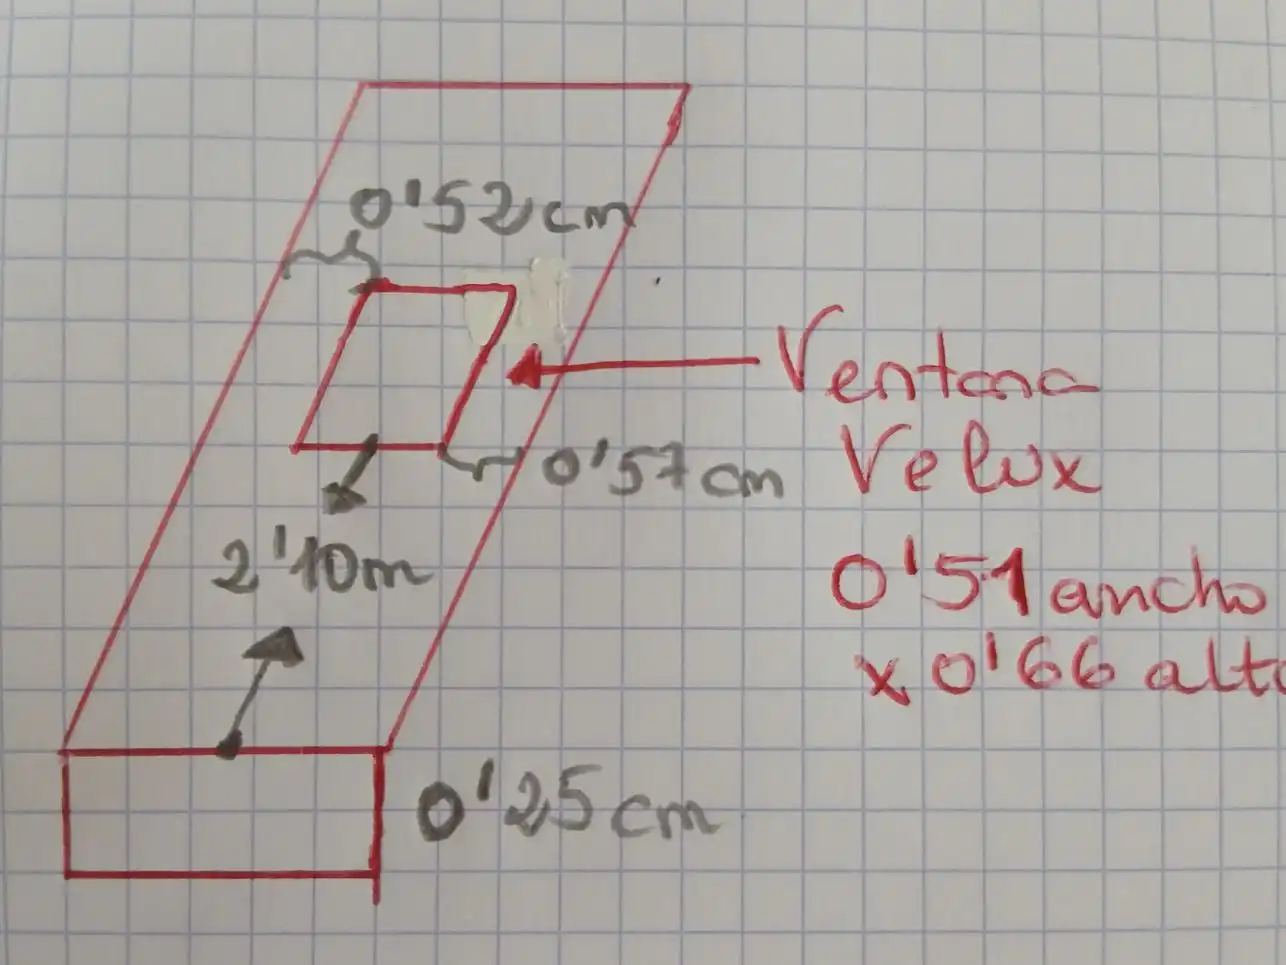 0'52cm
Ventana
Velux
0'57cm
2'10m
0'51 ancho
x 0'66 alto
0'25cm